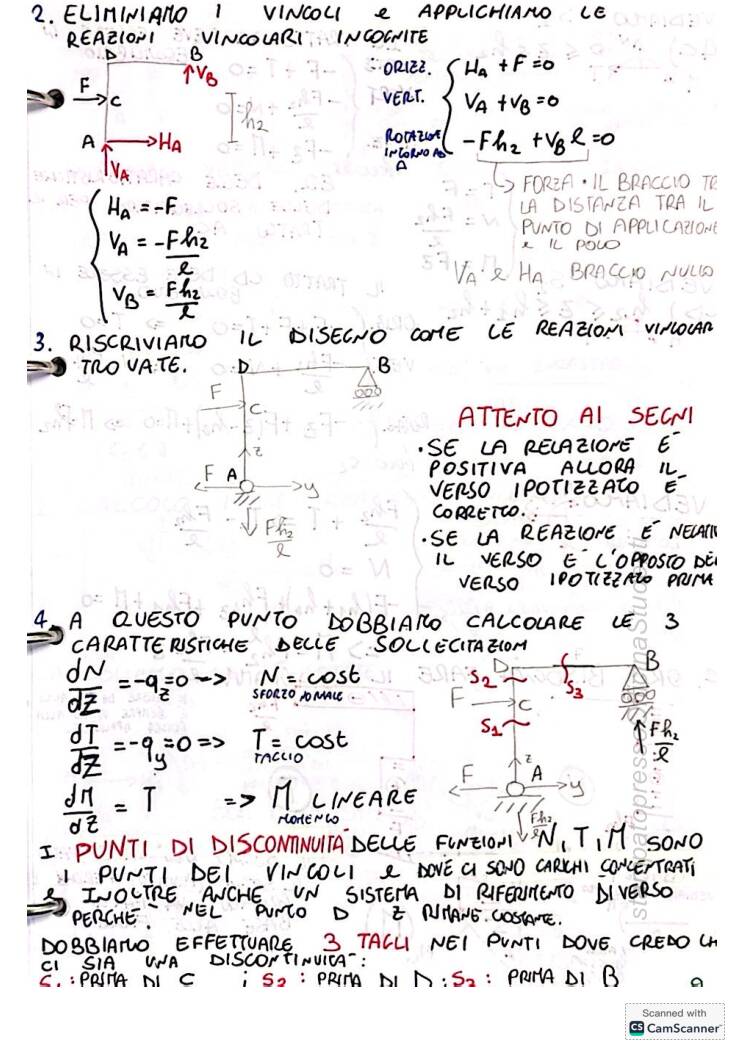 2. ELIMINIAMO I VINCOLI e APPLICHIAMO LE
REAZIONI VINCOLARI INCOGNITE
D B
↑VB
F
C
h2
A → HA
↑VA
ORIZZ. HA + F = 0
VERT. VA + VB = 0
ROTAZIONE
INTORNO AD
A
-Fh2 + VB l = 0
↳ FORZA · IL BRACCIO
LA DISTANZA TRA IL
PUNTO DI APPLICAZIONE
e IL POLO
VA e HA BRACCIO NULLO
HA = -F
VA = -Fh2/l
VB = Fh2/l
3. RISCRIVIAMO IL DISEGNO COME LE REAZIONI VINCOLAR
TROVATE.
D B
F
C
z
F A y
Fh2/l
ATTENTO AI SEGNI
· SE LA RELAZIONE E'
POSITIVA ALLORA IL
VERSO IPOTIZZATO E'
CORRETTO.
· SE LA REAZIONE E' NEGATI
IL VERSO E' L'OPPOSTO DEL
VERSO IPOTIZZATO PRIMA
4. A QUESTO PUNTO DOBBIAMO CALCOLARE LE 3
CARATTERISTICHE DELLE SOLLECITAZIONI
dN/dz = -qz = 0 => N = cost
SFORZO NORMALE
dT/dz = -qy = 0 => T = cost
TAGLIO
dM/dz = T => M LINEARE
MOMENTO
D B
S2 S3
F C
S1
Fh2/l
z
F A y
Fh2/l
I PUNTI DI DISCONTINUITA' DELLE FUNZIONI N, T, M SONO
I PUNTI DEI VINCOLI e DOVE CI SONO CARICHI CONCENTRATI
e INOLTRE ANCHE UN SISTEMA DI RIFERIMENTO DIVERSO
PERCHE' NEL PUNTO D z RIMANE COSTANTE.
DOBBIAMO EFFETTUARE 3 TAGLI NEI PUNTI DOVE CREDO CH
CI SIA UNA DISCONTINUITA':
S1: PRIMA DI C ; S2: PRIMA DI D; S2: PRIMA DI B
Scanned with
CS CamScanner